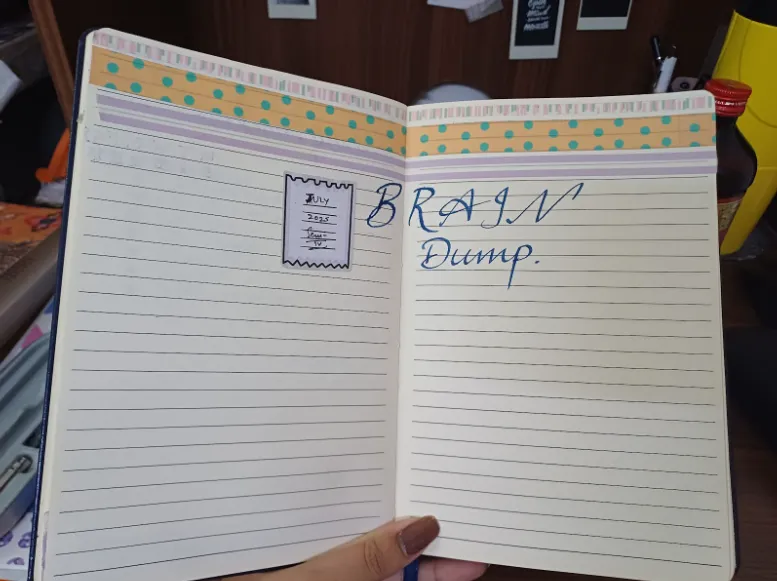 JULY
2025
BRAIN
Dump.